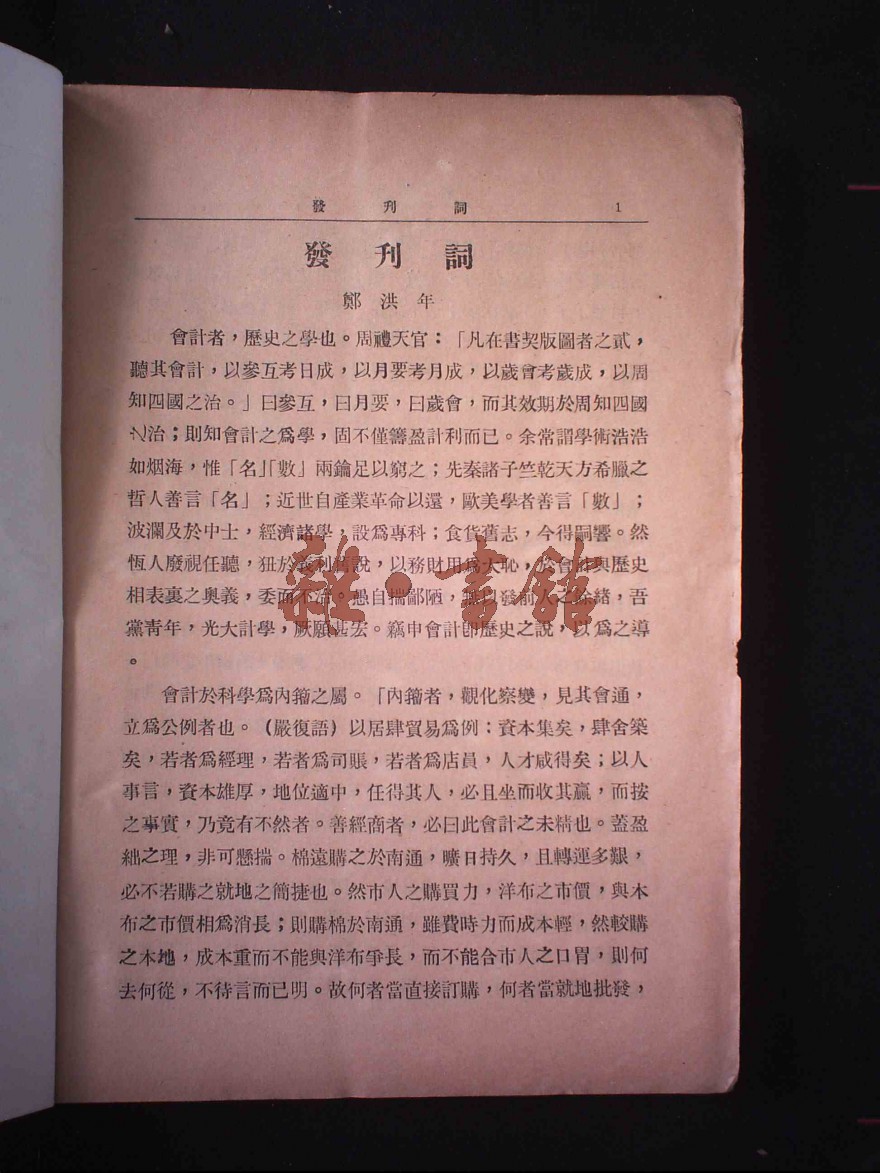 發刊詞 1
發刊詞
鄭洪年
會計者，歷史之學也。周禮天官：「凡在書契版圖者之貳，
聽其會計，以參互考日成，以月要考月成，以歲會考歲成，以周
知四國之治。」曰參互，曰月要，曰歲會，而其效期於周知四國
之治；則知會計之爲學，固不僅籌盈計利而已。余常謂學術浩浩
如烟海，惟「名」「數」兩鑰足以窮之；先秦諸子竺乾天方希臘之
哲人善言「名」；近世自產業革命以還，歐美學者善言「數」；
波瀾及於中士，經濟諸學，設爲專科；食貨舊志，今得嗣響。然
恆人廢視任聽，狃於義利舊說，以務財用爲大恥，於會計與歷史
相表裏之奧義，委而不流。愚自揣鄙陋，無以發前人之餘緒，吾
黨靑年，光大計學，厥願甚宏。竊申會計卽歷史之說，以爲之導
。
會計於科學爲內籀之屬。「內籀者，觀化察變，見其會通，
立爲公例者也。（嚴復語）以居肆貿易爲例：資本集矣，肆舍築
矣，若者爲經理，若者爲司賬，若者爲店員，人才咸得矣；以人
事言，資本雄厚，地位適中，任得其人，必且坐而收其贏，而按
之事實，乃竟有不然者。善經商者，必曰此會計之未精也。蓋盈
絀之理，非可懸揣。棉遠購之於南通，曠日持久，且轉運多艱，
必不若購之就地之簡捷也。然市人之購買力，洋布之市價，與木
布之市價相爲消長；則購棉於南通，雖費時力而成本輕，然較購
之本地，成本重而不能與洋布爭長，而不能合市人之口胃，則何
去何從，不待言而已明。故何者當直接訂購，何者當就地批發，
雜·書館